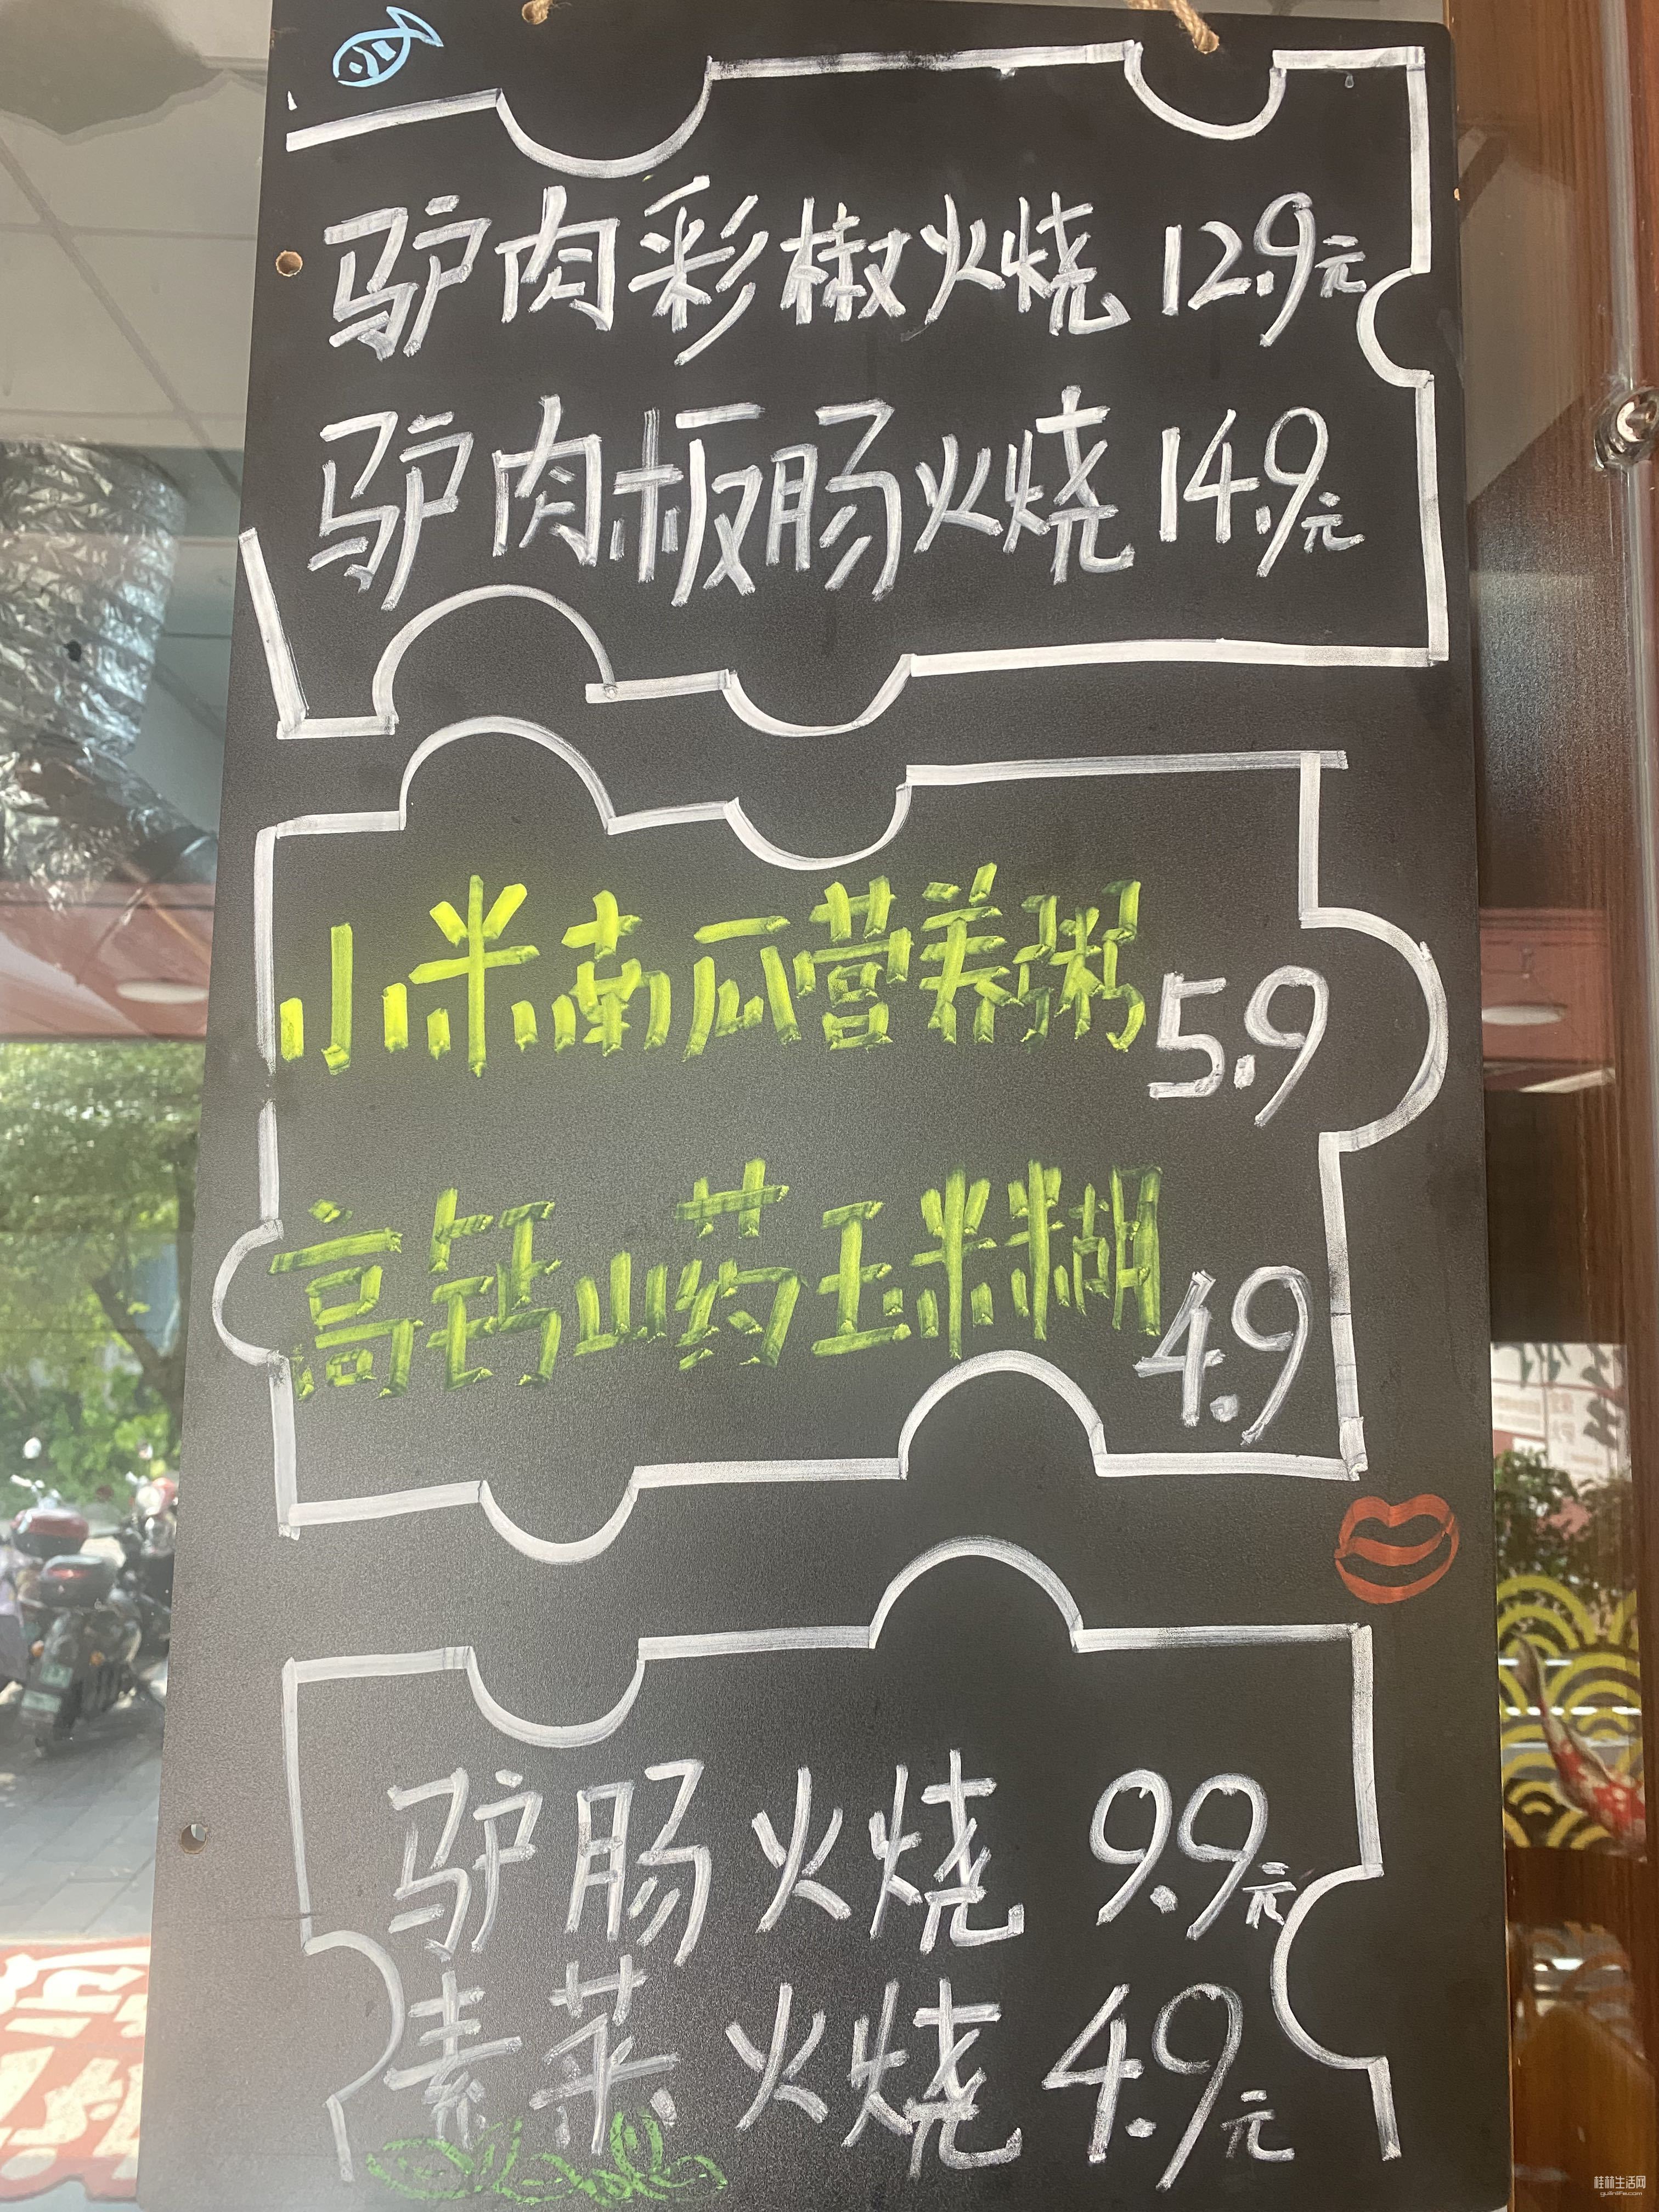 驴肉彩椒火烧 12.9元
驴肉板肠火烧 14.9元
小米南瓜营养粥 5.9
高钙山药玉米糊 4.9
驴肠火烧 9.9元
素菜火烧 4.9元
桂林生活网
guilinlife.com